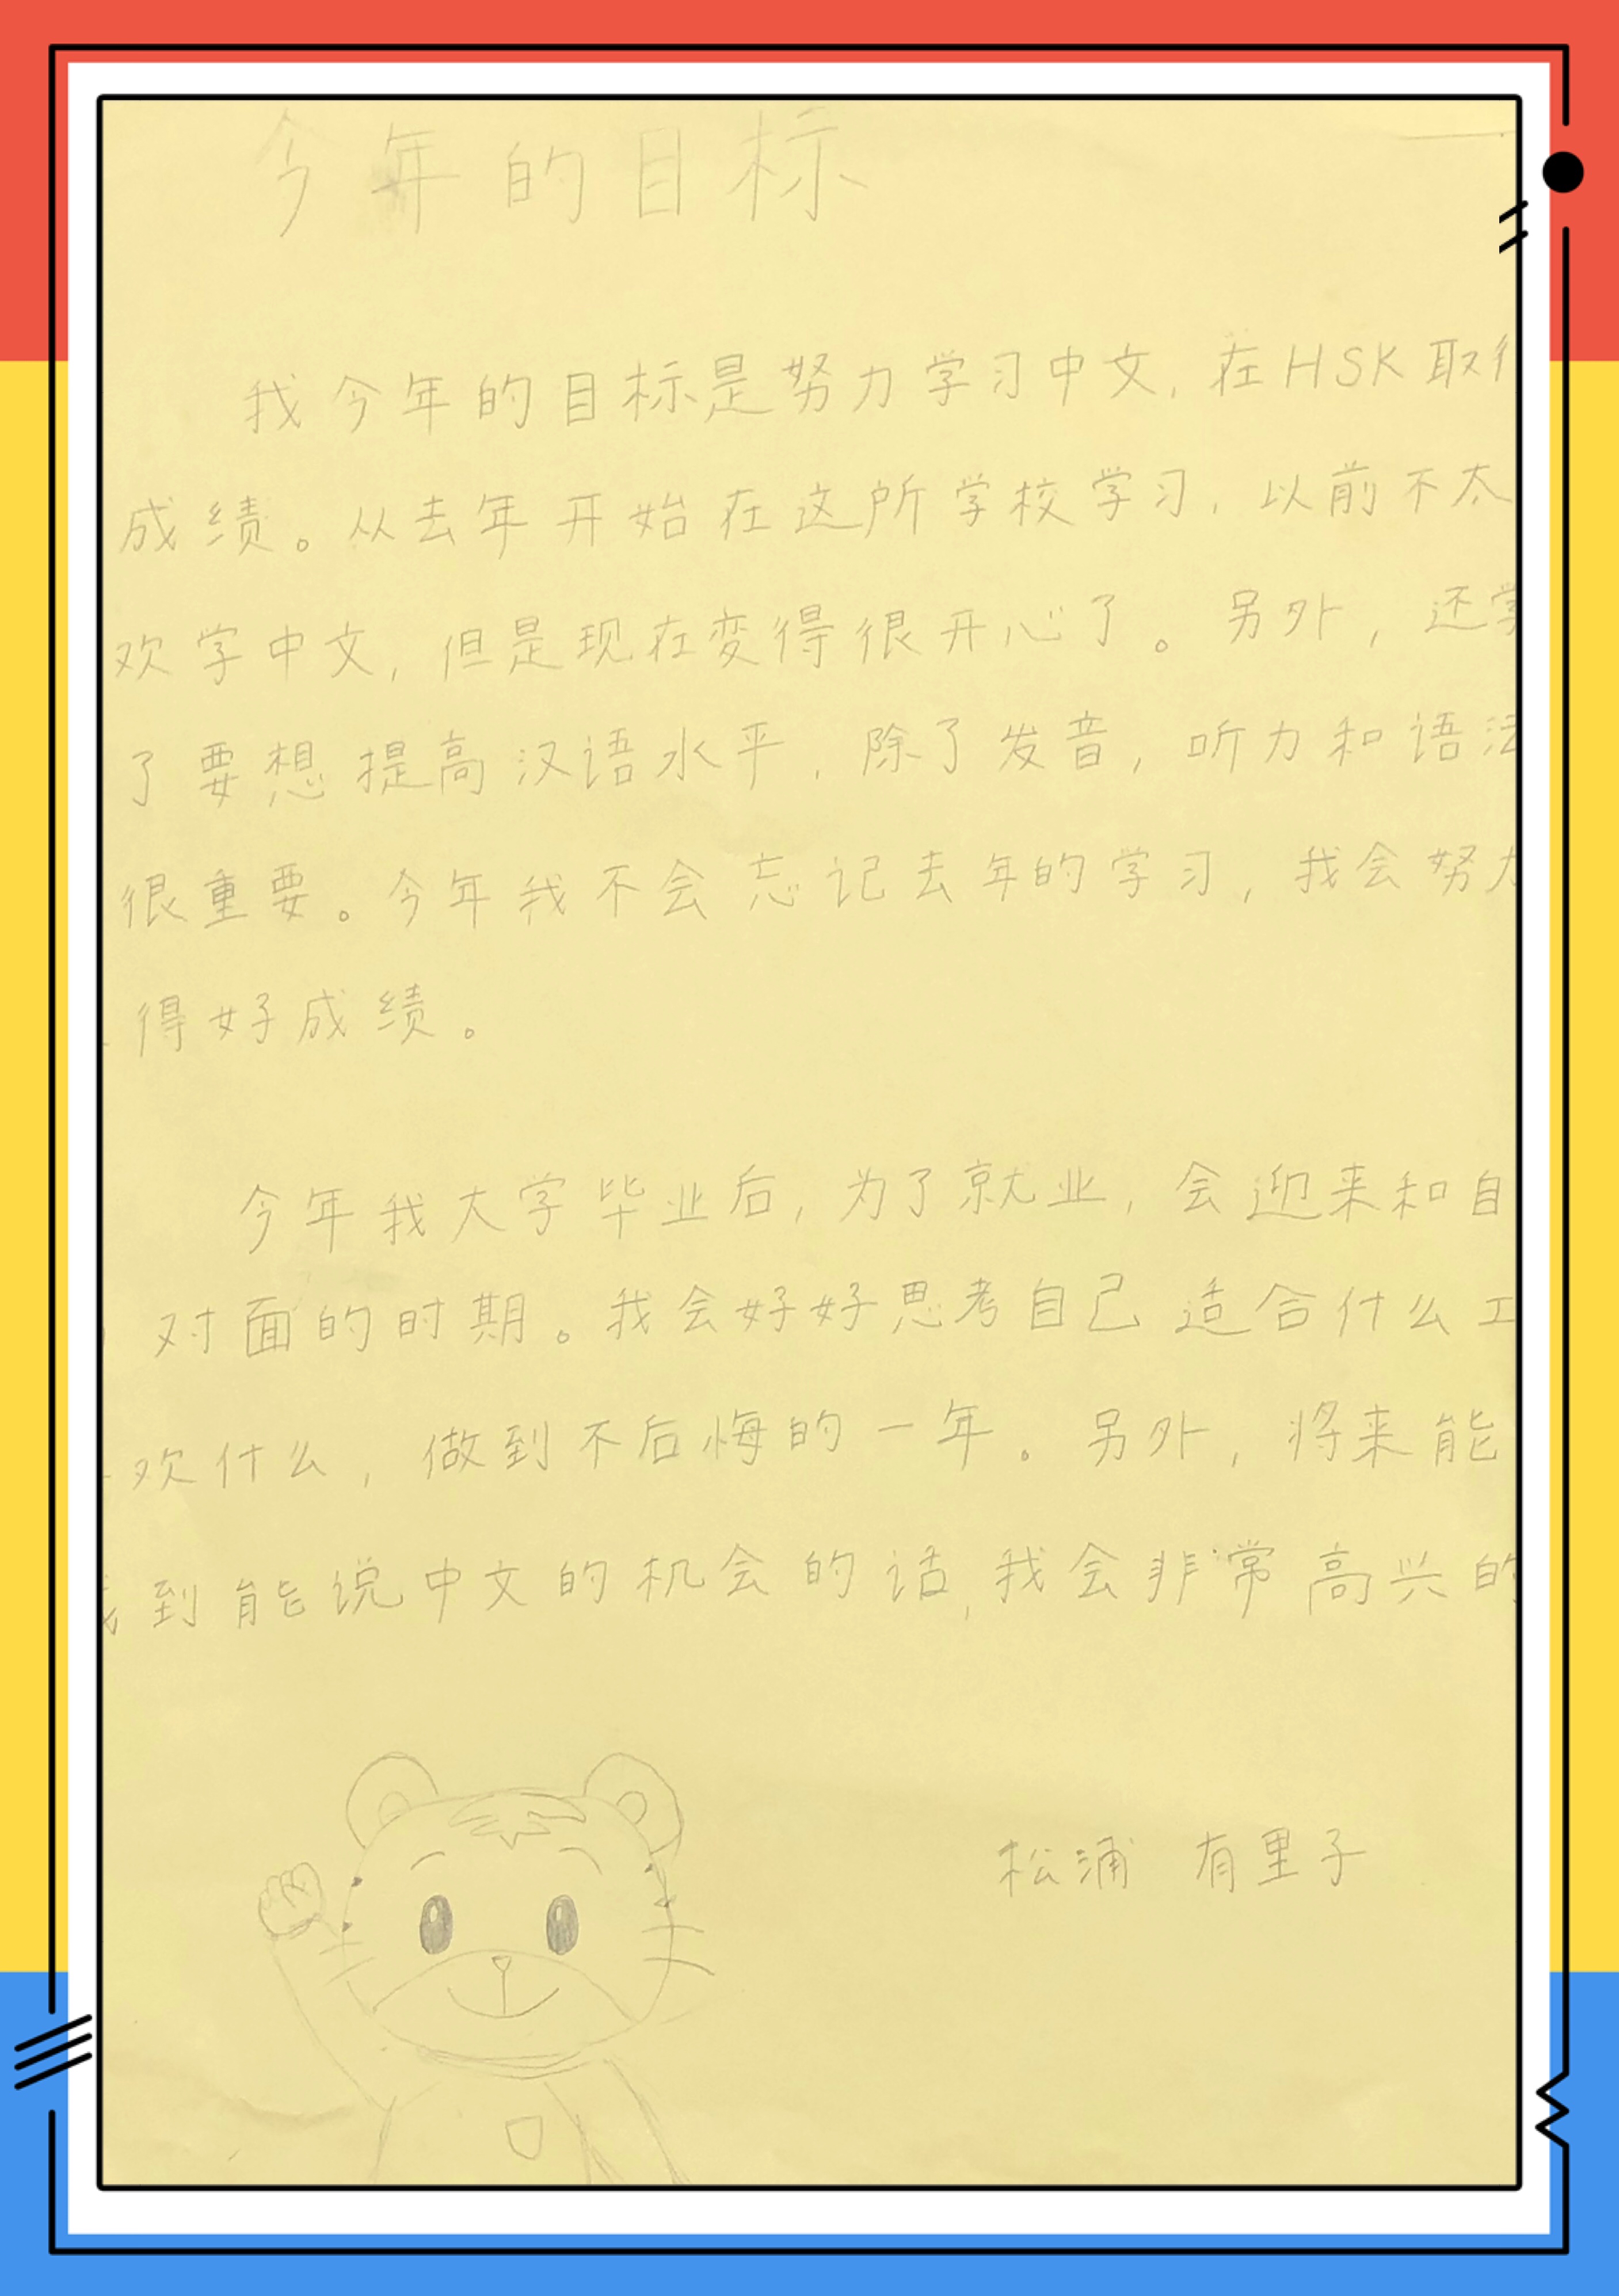 今年的目标
我今年的目标是努力学习中文,在HSK取
成绩。从去年开始在这所学校学习,以前不太
欢学中文,但是现在变得很开心了。另外,还学
了要想提高汉语水平,除了发音,听力和语法
很重要。今年我不会忘记去年的学习,我会努力
得好成绩。
今年我大学毕业后,为了就业,会迎来和自
对面的时期。我会好好思考自己适合什么工
欢什么,做到不后悔的一年。另外,将来能
到能说中文的机会的话,我会非常高兴的
松浦 有里子